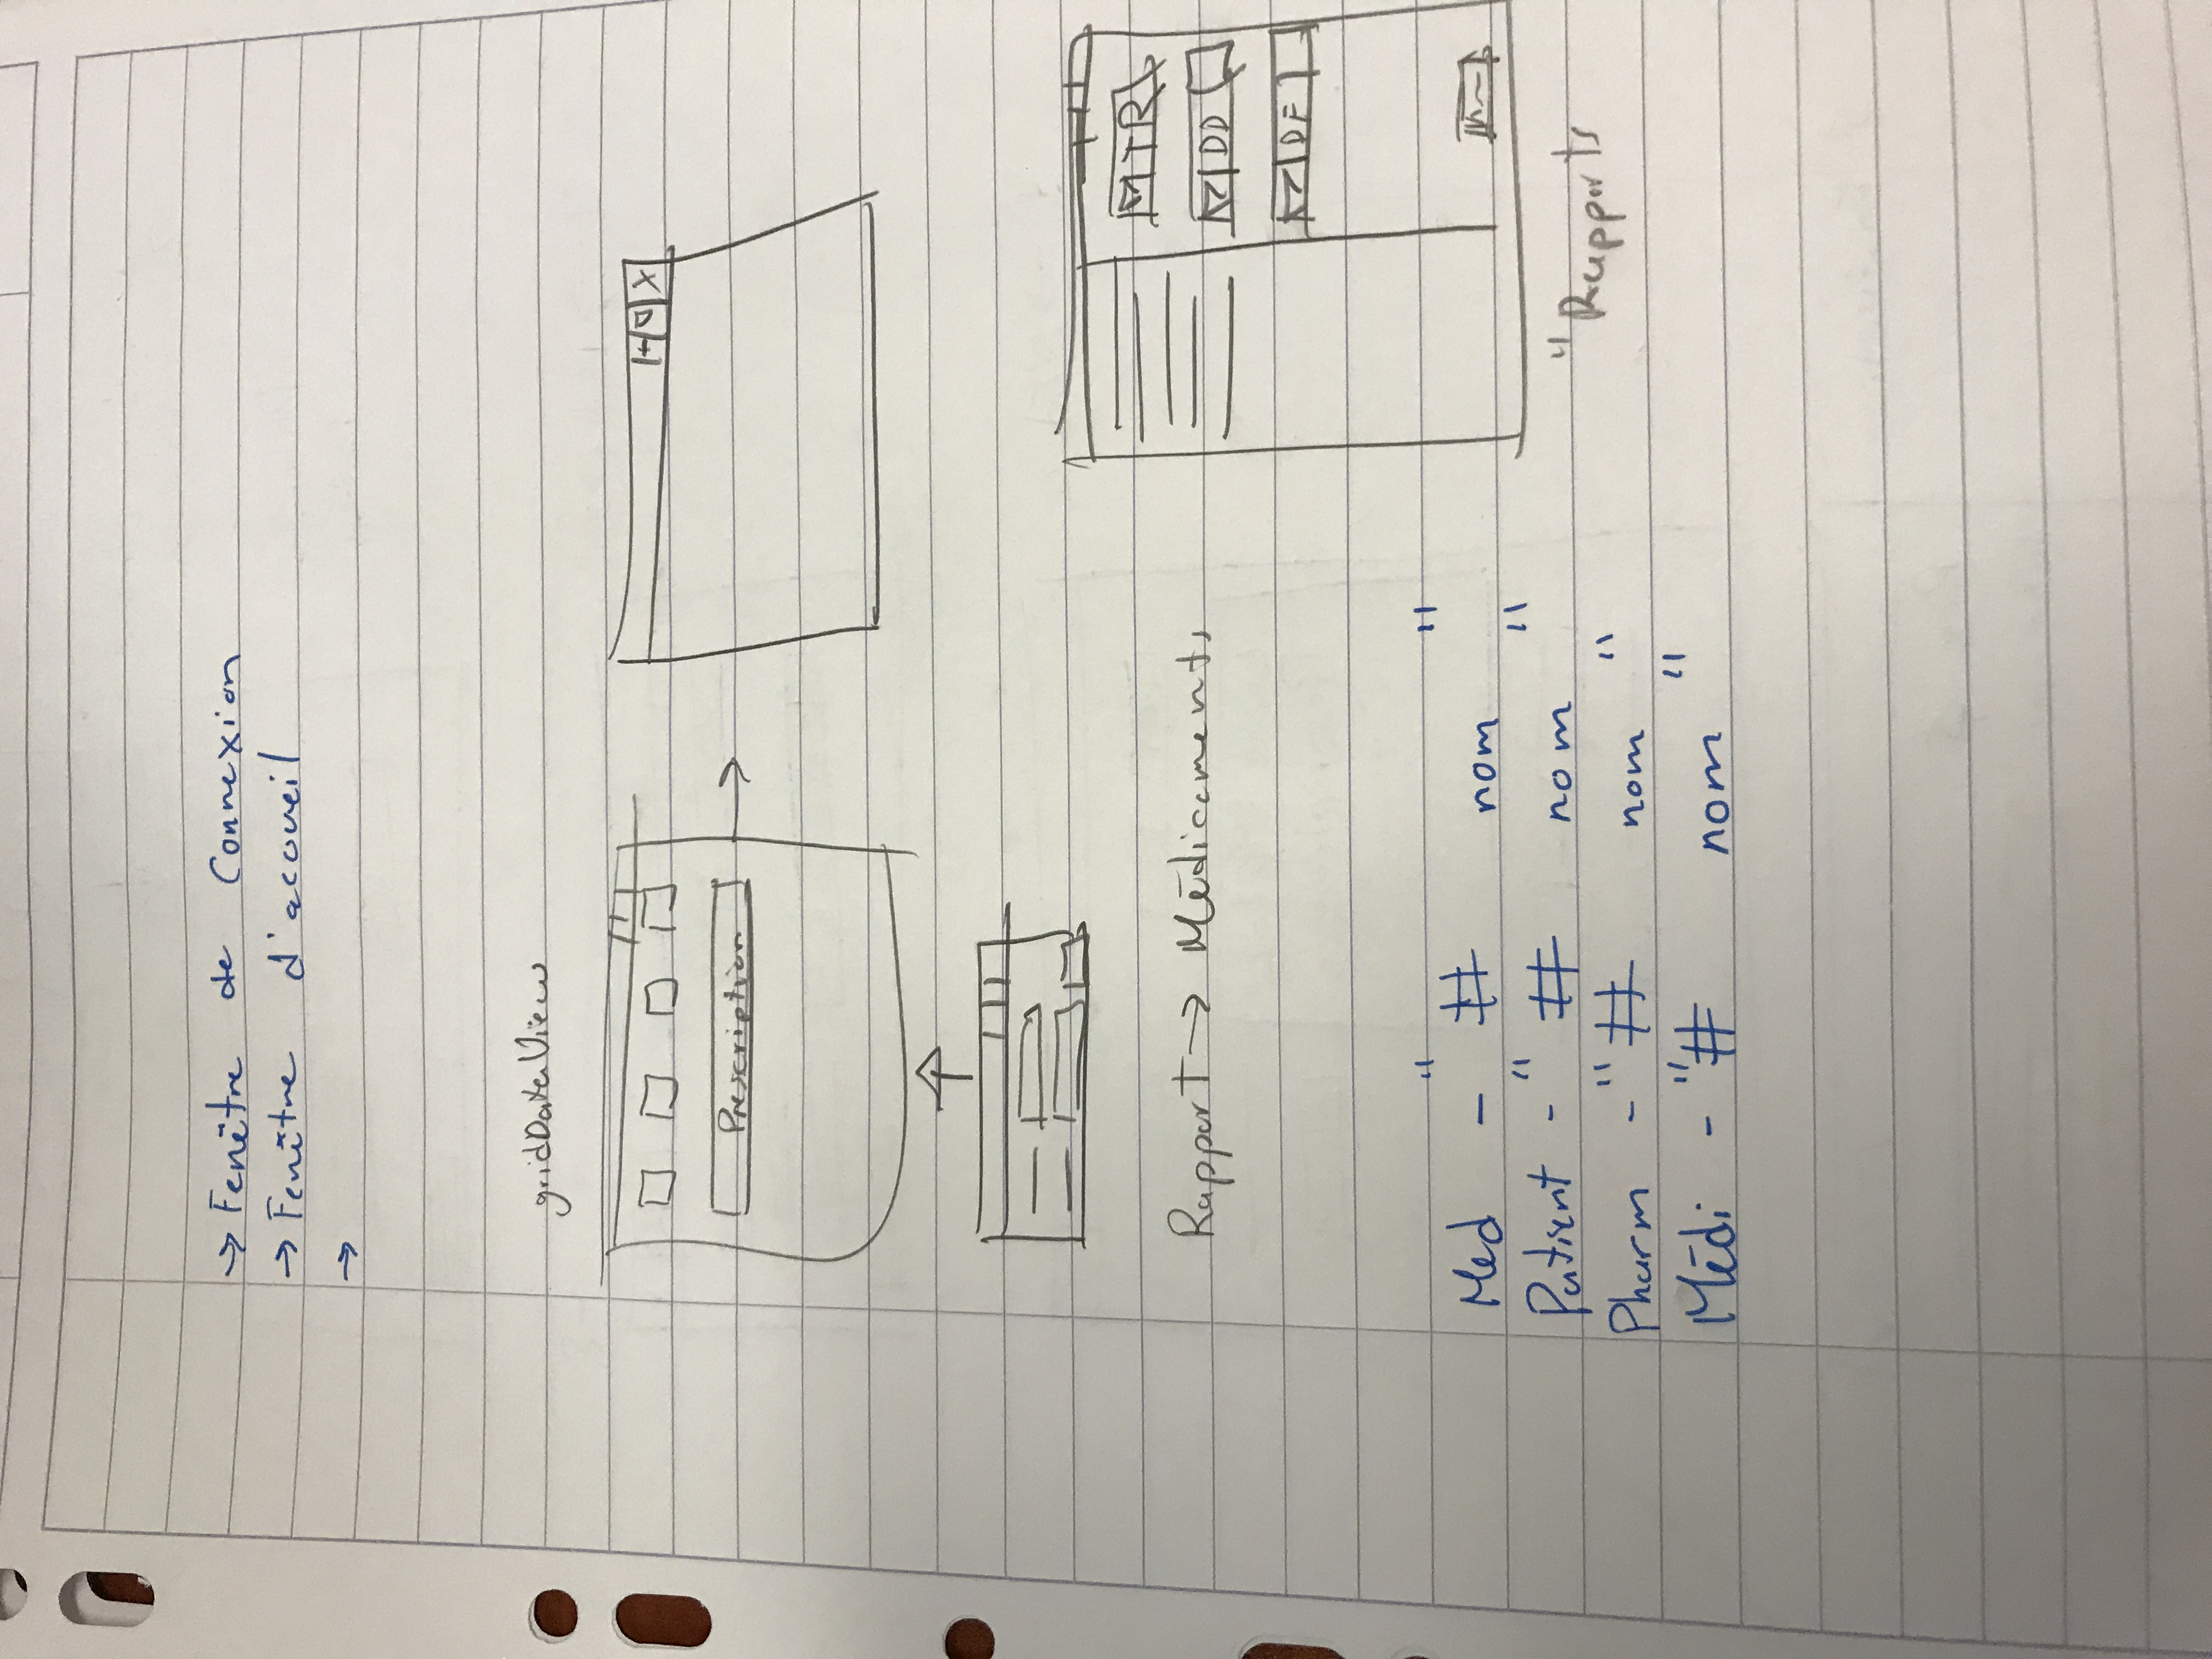 → Fenêtre de Connexion
→ Fenêtre d'accueil
→
gridDataView
Prescription
X
TR
DD
DF
Rapport → Médicaments
Med - " # nom "
Patient - " # nom "
Pharm - " # nom "
Médi - " # nom "
" Rapports